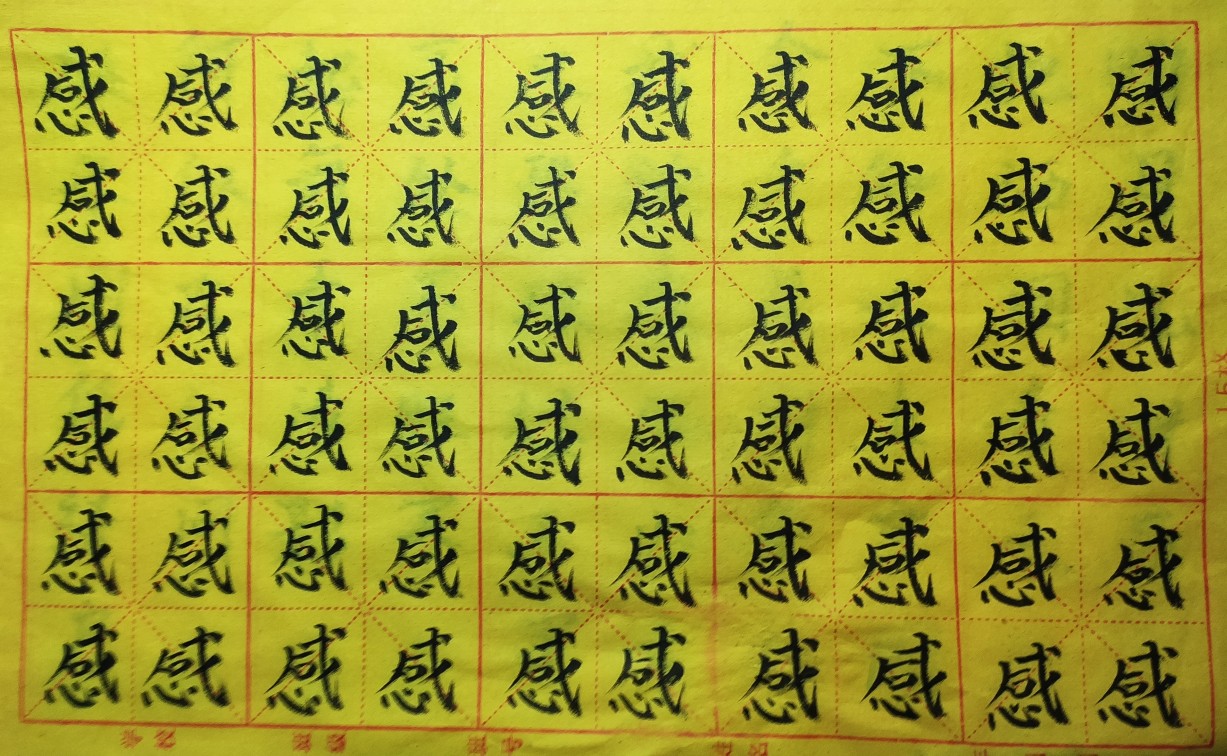 感感感感感感感感感感
感感感感感感感感感感
感感感感感感感感感感
感感感感感感感感感感
感感感感感感感感感感
感感感感感感感感感感